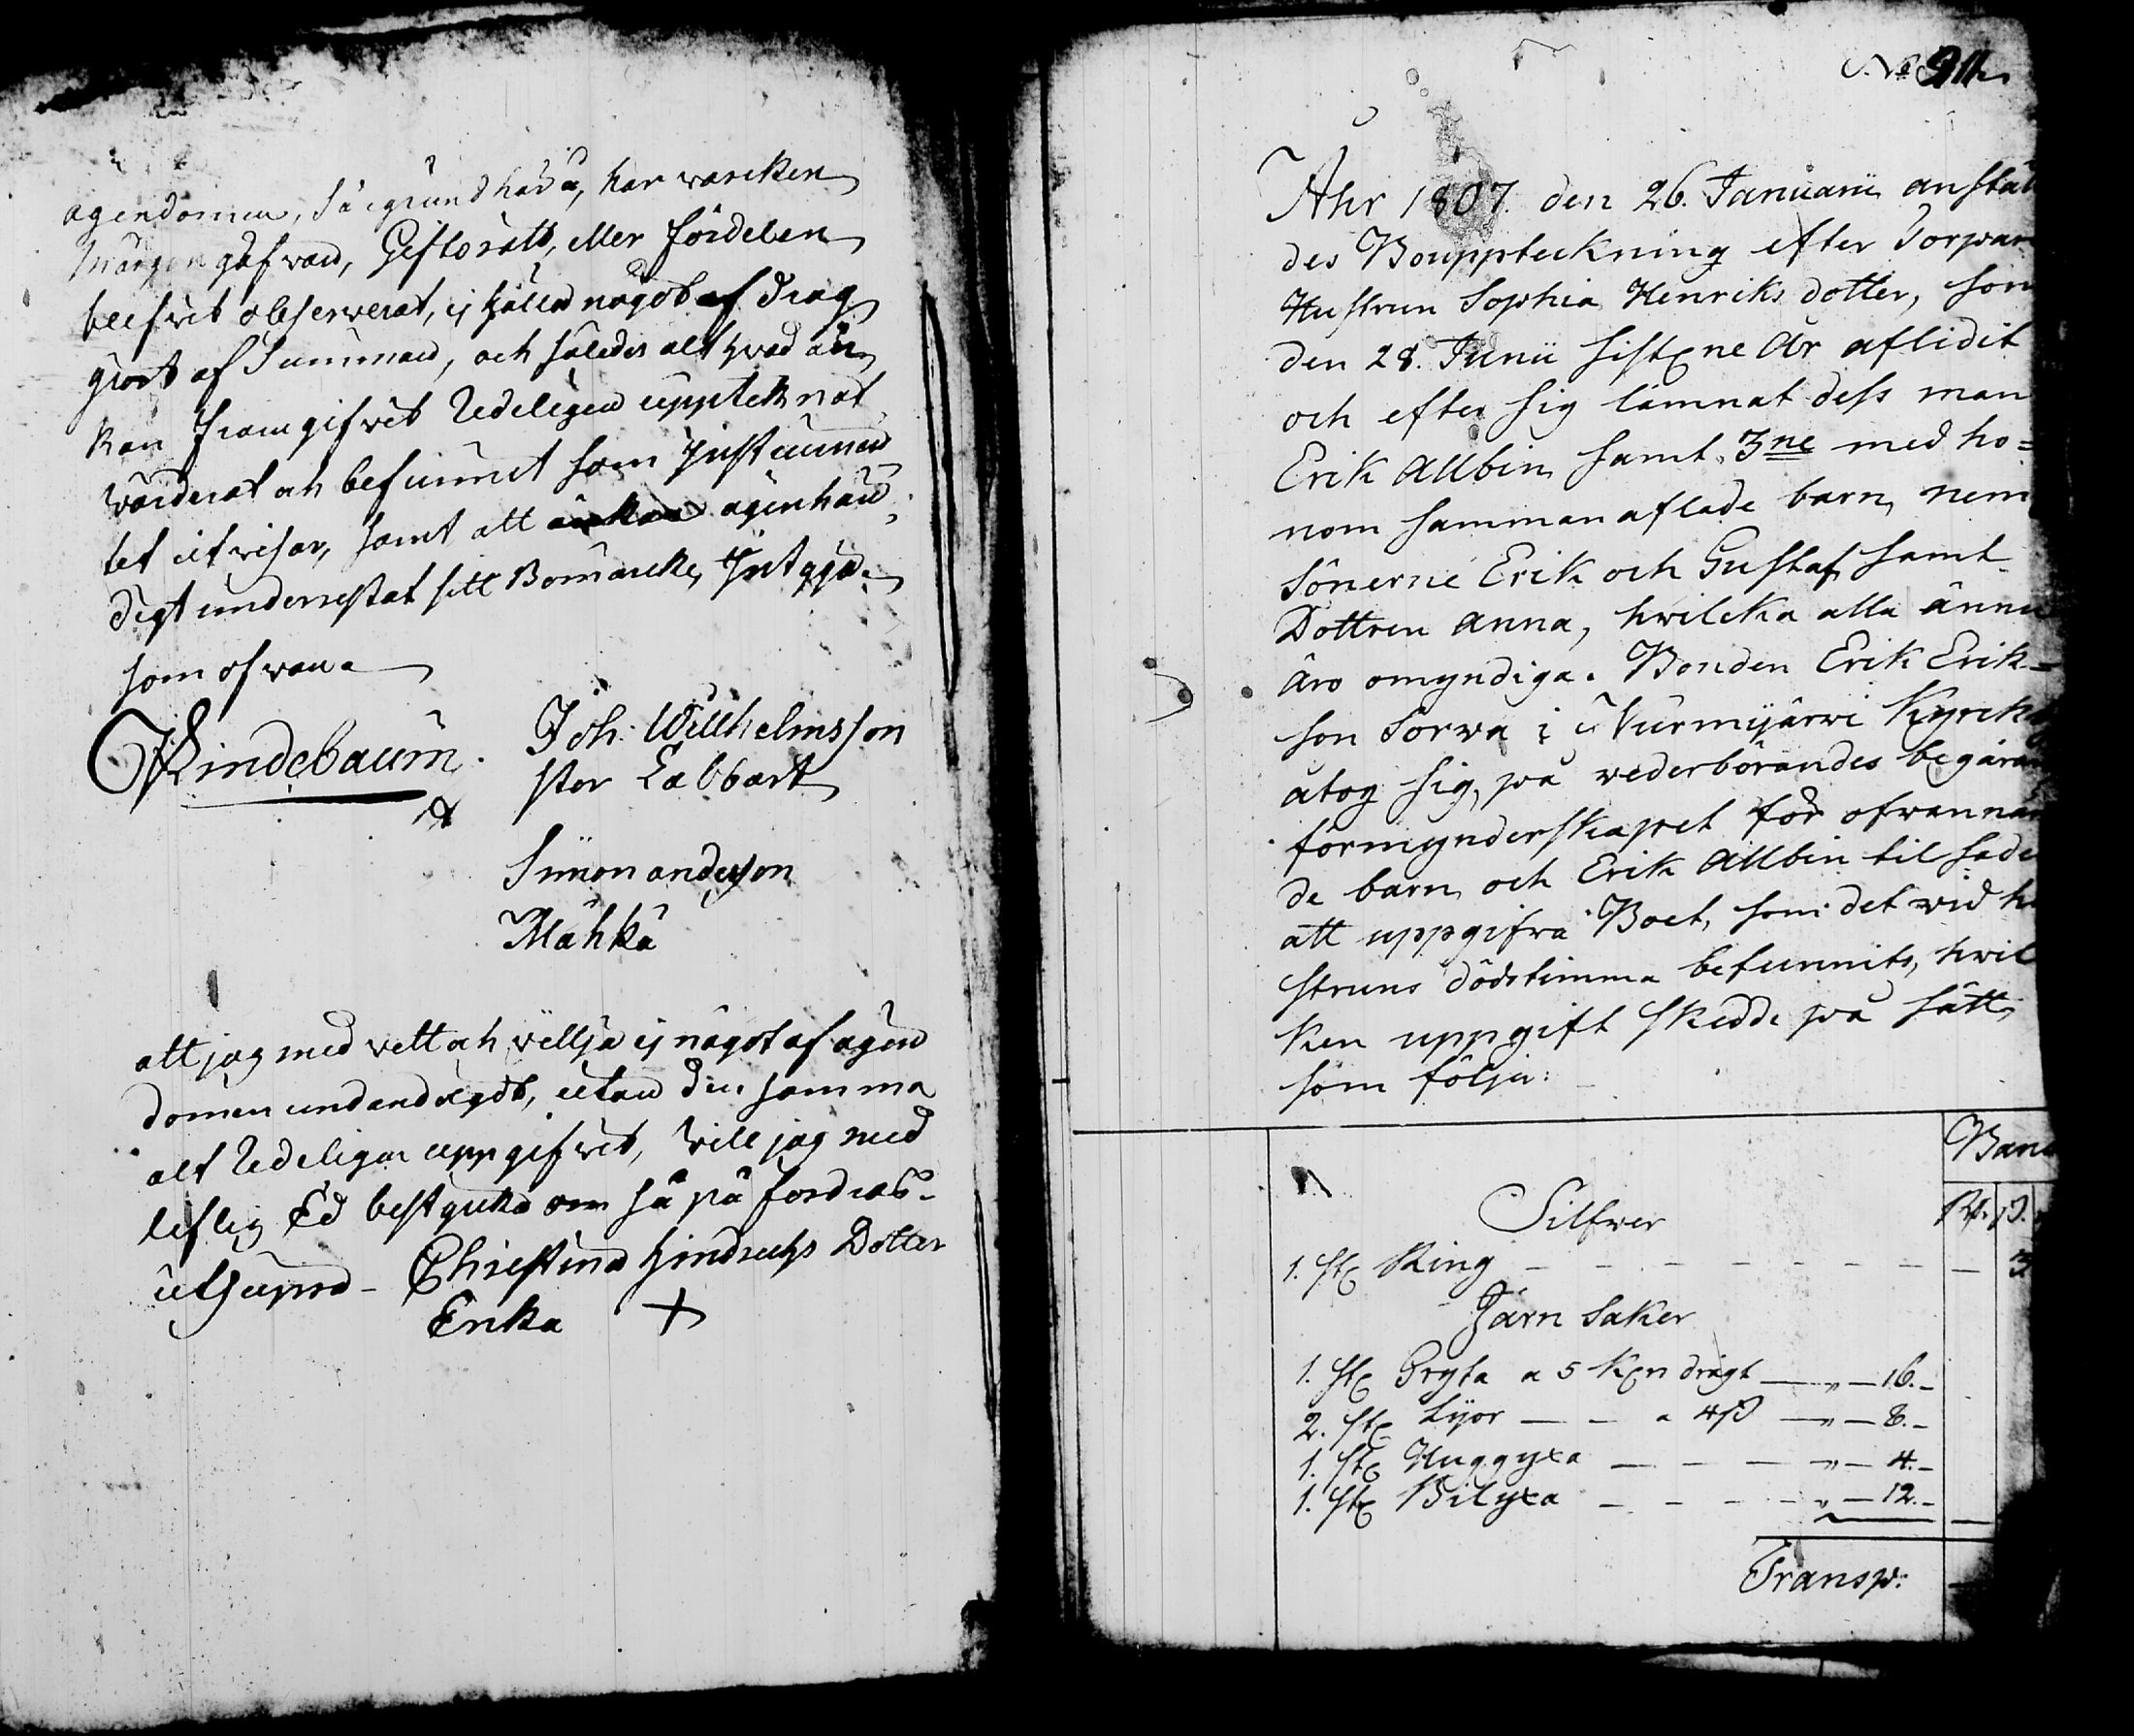 ägendomen, så i grund häraf, har warcken
Märgongåfwan, Giftorätt, eller fördelen
blefwit observerat, ej häller något afdrag
giort af Summan, och således alt hvad än,
kan framgifwit Redeligen uppteknat
värderat och befunnit som Instrumen
tet utvisar, samt att änkan ägenhän
digt underrestat sitt Bomärcke, Intyga.
som ofwan
Lindebaum.
Joh: Willhelmsson
stor Labbart
Simon andersson
Mähkä
att jag med vett och villja ej något af ägen
domen undandragit, utan den samma
alt Redeligen uppgifwit, vill jag med
liflig Ed bestyrka om så på fordras.
ut supra - Christina Hindrichs Dotter
Enka +
No 911.
Ahr 1807. den 26. Januarii anstäl
des Bouppteckning efter Torpar
Hustrun Sophia Henriks dotter, som
den 28. Junii sistne År aflidit
och efter sig lämnat dess man
Erik Allbin samt 3ne med ho=
nom sammanaflade barn, nem
Sönerne Erik och Gustaf samt
Dottren Anna, hvilcka alla ännu
äro omyndiga. Bonden Erik Erik=
son Sorva i Nurmijärvi Kyrck
åtog sig, på wederbörandes begäran
förmynderskapet för ofwannäm
de barn, och Erik Allbin til sade
att uppgifva Boet, som det wid hu
struns dödstimma befunnits, hvil
ken uppgift skedde på sätt
som följer:
Banc
Silfwer
R. ß.
1. st Ring — — — 3
Järn Saker
1. st Gryta a 5 Kn drägt — " — 16. -
2. st Lijor — — a 4ß — " — 8. -
1. st Huggyxa — — — " — 4. -
1. st Bilyxa — — — " — 12. -
Transp: